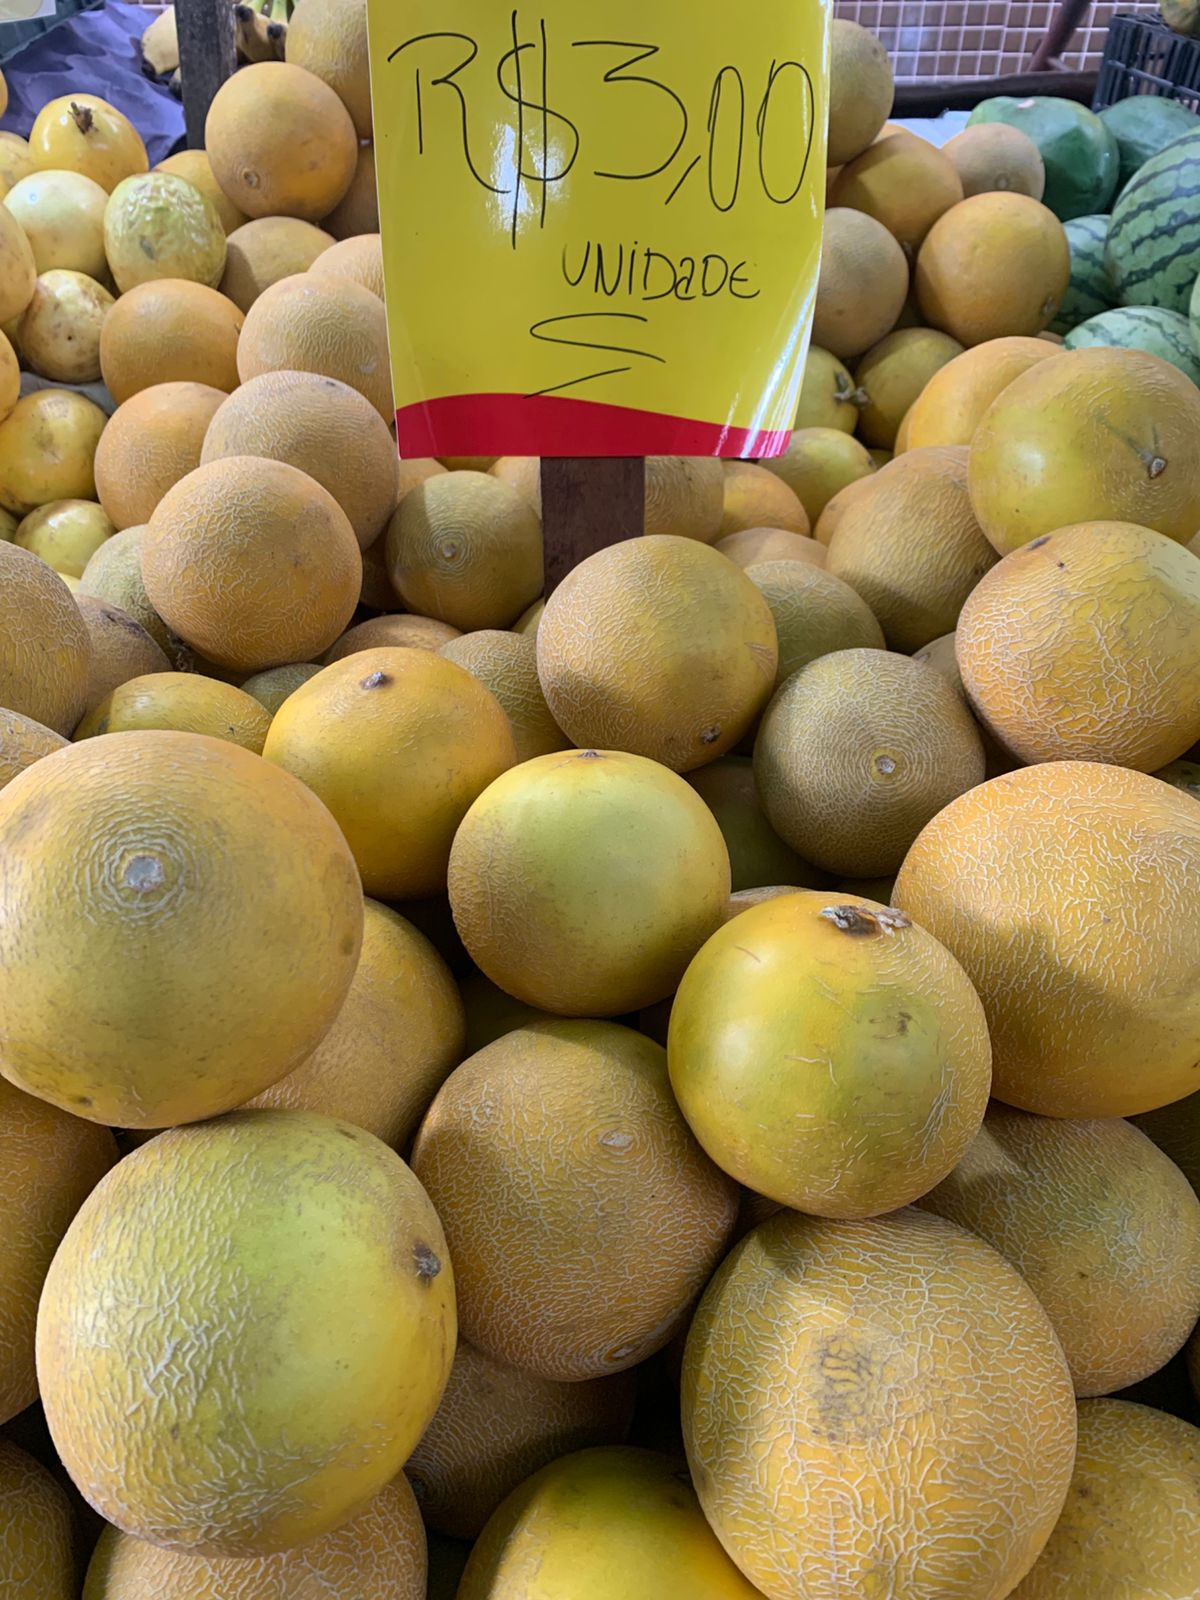 R$3,00
UNIDADE